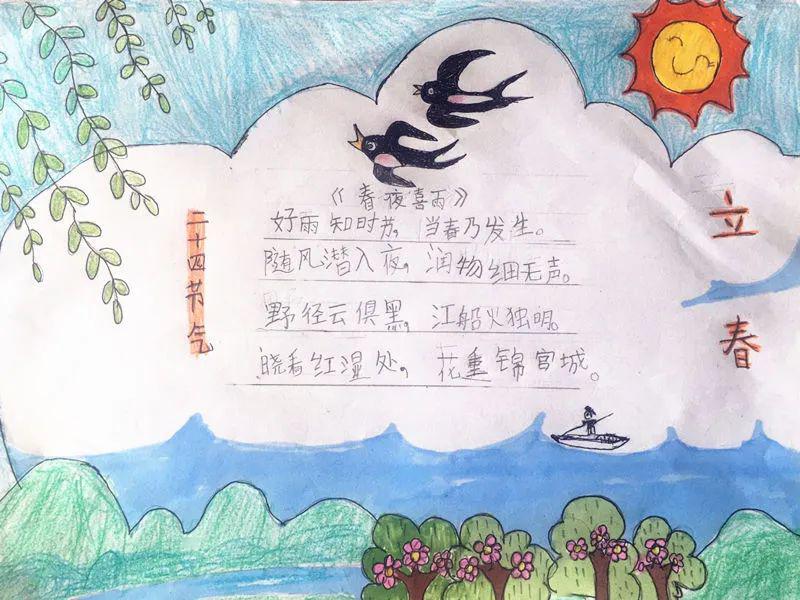 《春夜喜雨》
好雨知时节，当春乃发生。
随风潜入夜，润物细无声。
野径云俱黑，江船火独明。
晓看红湿处，花重锦官城。
二十四节气
立春